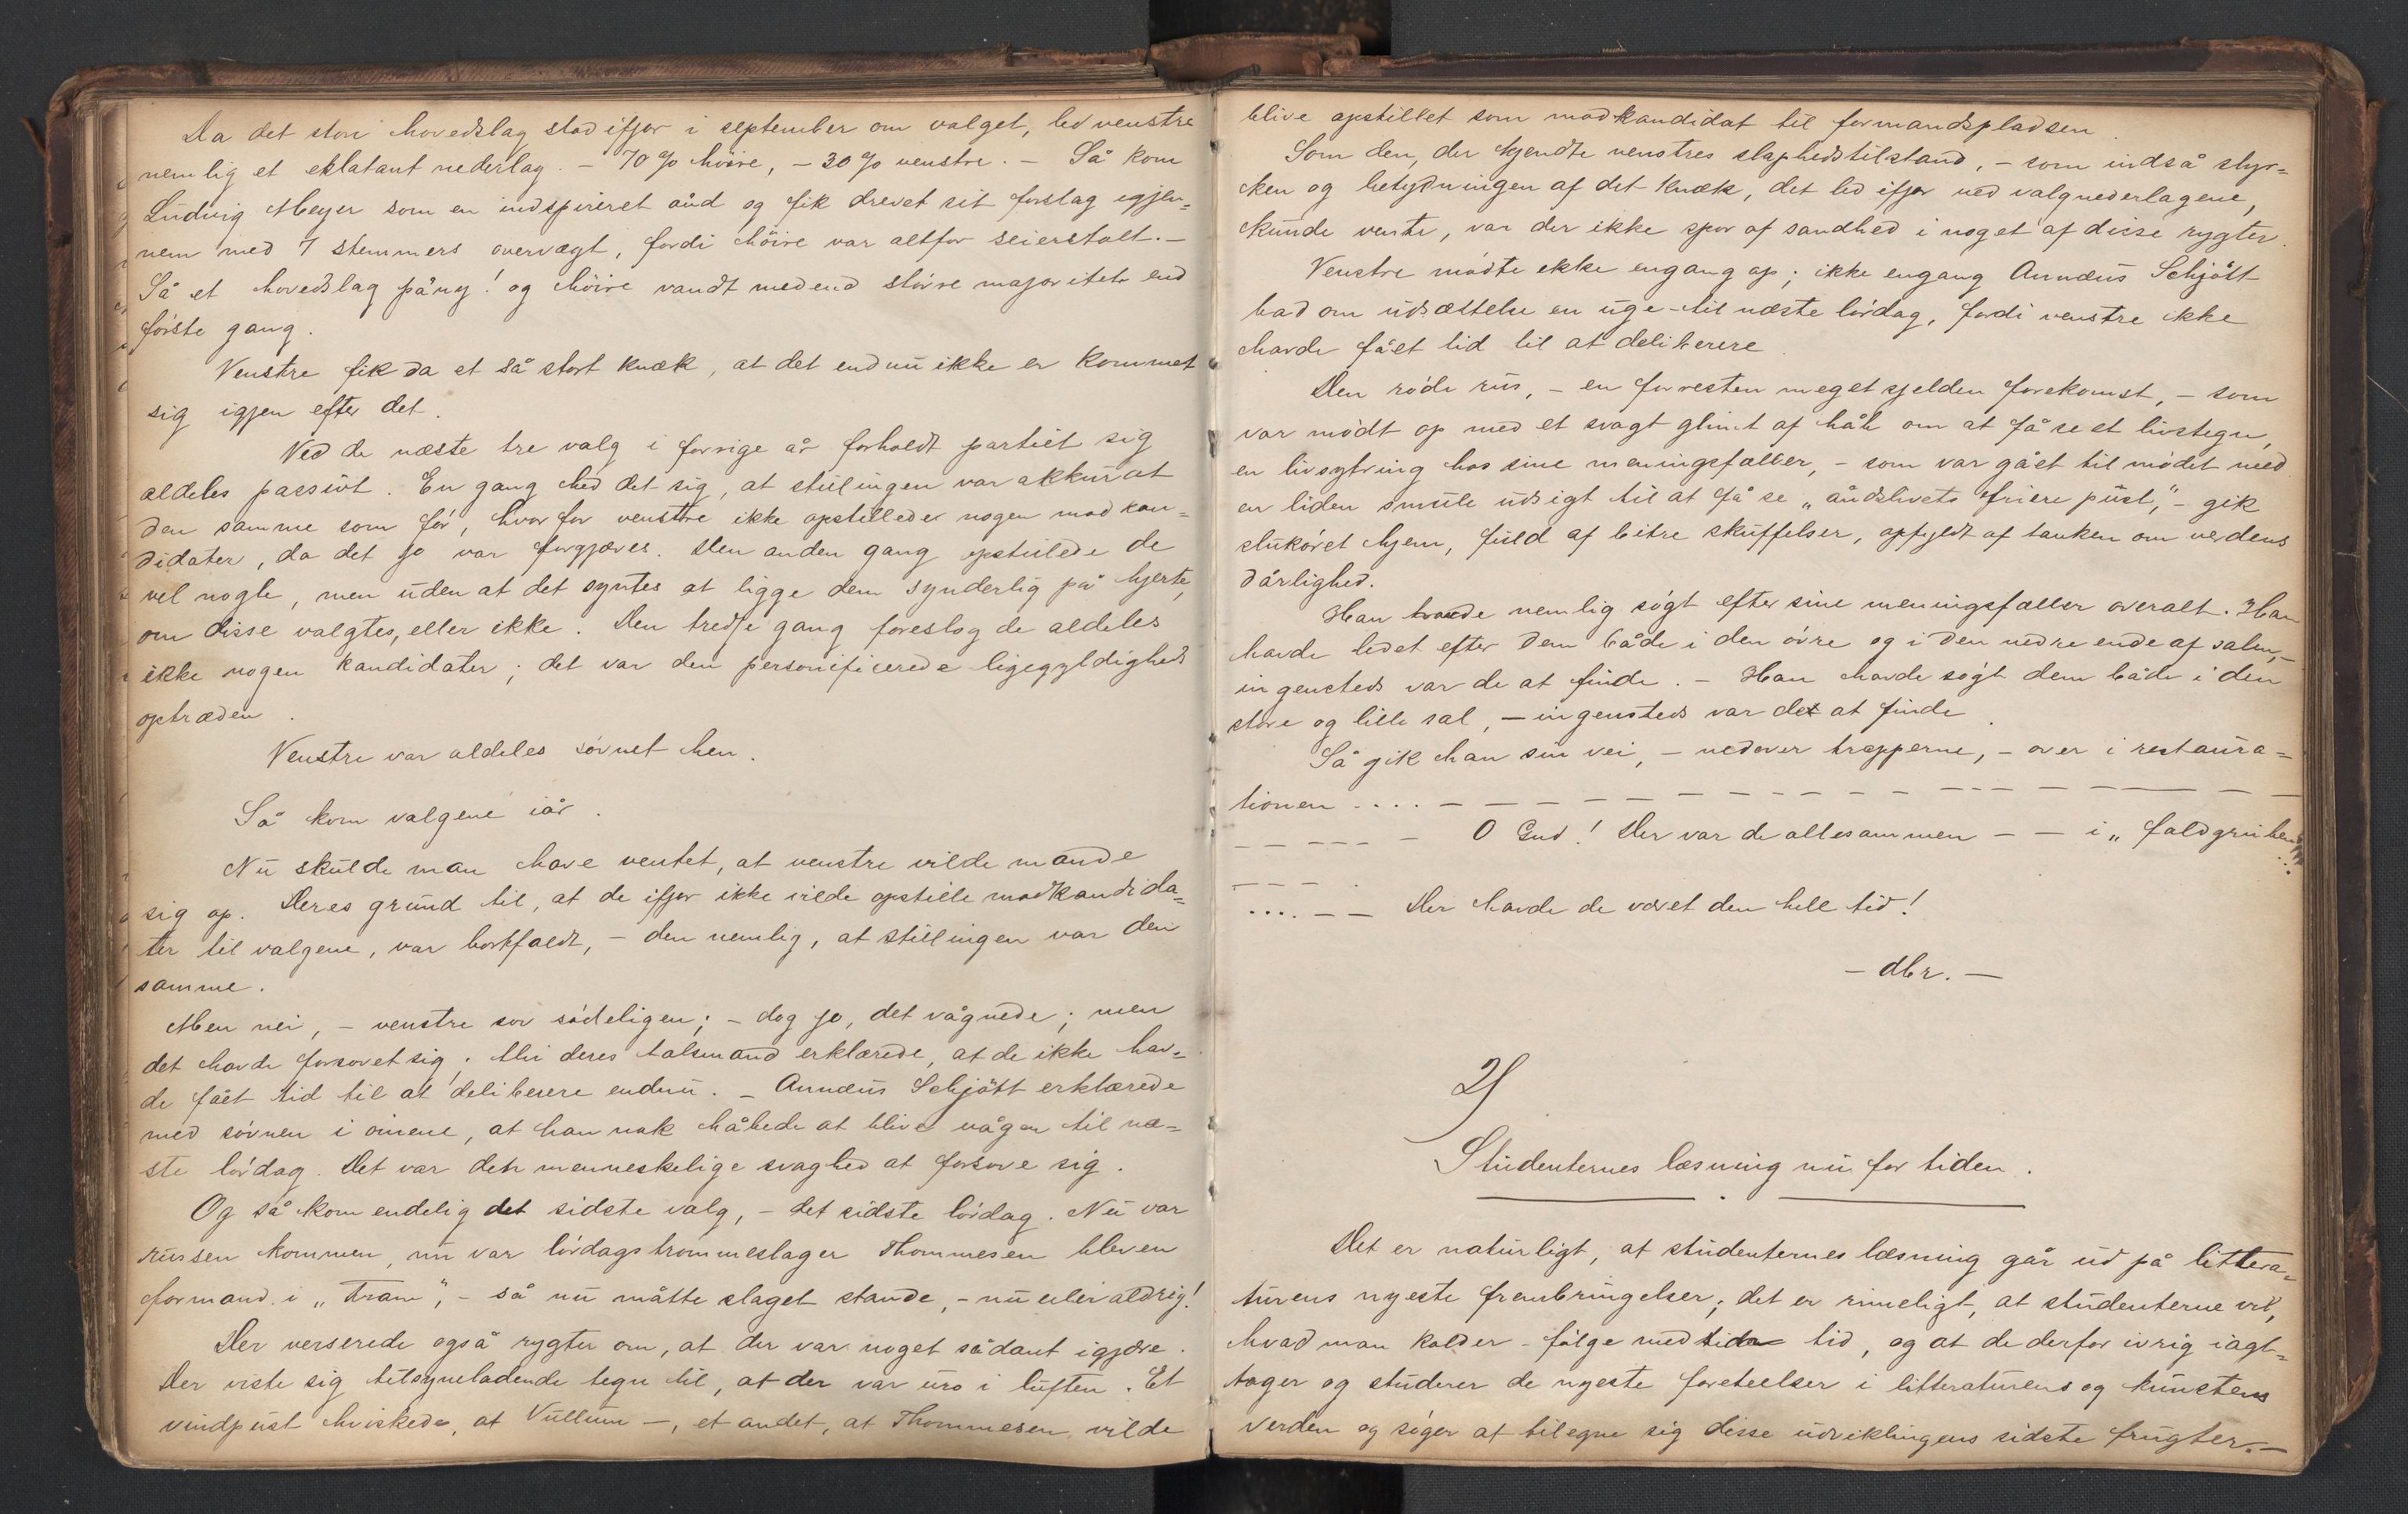 Da det store hovedslag stod ifjor i september om valget, led venstre
nemlig et eklatant nederlag. – 70 % høire, – 30 % venstre. – Så kom
Ludvig Meyer som en indspireret ånd og fik drevet sit forslag igjen-
nem med 7 stemmers overvægt, fordi høire var altfor seierstolt. –
Så et hovedslag påny! og høire vandt med end større majoritet end
første gang.
Venstre fik da et så stort knæk, at det endnu ikke er kommet
sig igjen efter det.
Ved de næste tre valg i forrige år forholdt partiet sig
aldeles passivt. En gang hed det sig, at stillingen var akkurat
den samme som før, hvorfor venstre ikke opstillede nogen modkan-
didater, da det jo var forgjæves. Den anden gang opstillede de
vel nogle, men uden at det syntes at ligge dem synderlig på hjerte,
om disse valgtes, eller ikke. Den tredje gang foreslog de aldeles
ikke nogen kandidater; det var den personificerede ligegyldigheds
optræden.
Venstre var aldeles søvnet hen.
Så kom valgene iår.
Nu skulde man have ventet, at venstre vilde mande
sig op. Deres grund til, at de ifjor ikke vilde opstille modkandida-
ter til valgene, var bortfaldt, – den nemlig, at stillingen var den
samme.
Men nei, – venstre sov sødeligen; – dog jo, det vågnede; men
det havde forsovet sig; thi deres talsmand erklærede, at de ikke hav-
de fået tid til at deliberere endnu. – Annæus Schjøtt erklærede
med søvnen i øinene, at han nok håbede at blive vågen til næ-
ste lørdag. Det var den menneskelige svaghed at forsove sig.
Og så kom endelig det sidste valg, – det sidste lørdag. Nu var
russen kommen, nu var lørdagstrommeslager Thommesen bleven
formand i „Fram“, – så nu måtte slaget stande, – nu eller aldrig!
Der verserede også rygter om, at der var noget sådant igjære.
Der viste sig tilsyneladende tegn til, at der var uro i luften. Et
vindpust hviskede, at Vullum –, et andet, at Thommesen vilde
blive opstillet som modkandidat til formandspladsen.
Som den, der kjendte venstres slaphedstilstand, – som indså styr-
ken og betydningen af det knæk, det led ifjor ved valgnederlagene,
kunde vente, var der ikke spor af sandhed i noget af disse rygter.
Venstre mødte ikke engang op; ikke engang Annæus Schjøtt
bad om udsættelse en uge – til næste lørdag, fordi venstre ikke
havde fået tid til at deliberere.
Den røde rus, – en forresten meget sjelden forekomst, – som
var mødt op med et svagt glimt af håb om at få se et livstegn,
en livsytring hos sine meningsfæller, – som var gået til mødet med
en liden smule udsigt til at få se „åndslivets friere pust,“ – gik
slukøret hjem, fuld af bitre skuffelser, opfyldt af tanken om verdens
dårlighed.
Han havde nemlig søgt efter sine meningsfæller overalt. Han
havde ledet efter dem både i den øvre og i den nedre ende af salen, –
ingensteds var de at finde. – Han havde søgt dem både i den
store og lille sal, – ingensteds var det at finde.
Så gik han sin vei, – nedover trapperne, – over i restaura-
tionen .... – – – – – – – – – – – – – – –
– – – – – – O Gud! Der var de allesammen – – i „faldgruben“
– – – .
.... – – Der havde de været den hele tid!
– dbr. –
2)
Studenternes læsning nu for tiden.
Det er naturligt, at studenternes læsning går ud på littera-
turens nyeste frembringelser; det er rimeligt, at studenterne vil,
hvad man kalder – følge med tiden tid, og at de derfor ivrig iagt-
tager og studerer de nyeste foreteelser i litteraturens og kunstens
verden og søger at tilegne sig disse udviklingens sidste frugter. –